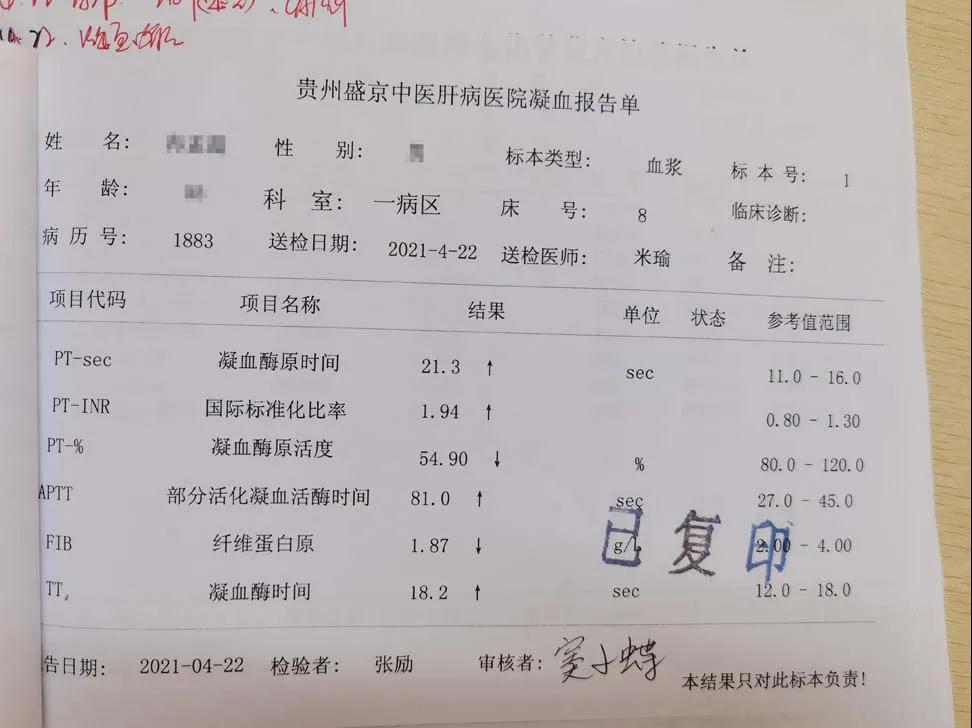 贵州盛京中医肝病医院凝血报告单
姓 名: 性 别: 标本类型: 血浆 标 本 号: 1
年 龄: 科 室: 一病区 床 号: 8 临床诊断:
病 历 号: 1883 送检日期: 2021-4-22 送检医师: 米瑜 备 注:
项目代码 项目名称 结果 单位 状态 参考值范围
PT-sec 凝血酶原时间 21.3 ↑ sec 11.0 - 16.0
PT-INR 国际标准化比率 1.94 ↑ 0.80 - 1.30
PT-% 凝血酶原活度 54.90 ↓ % 80.0 - 120.0
APTT 部分活化凝血活酶时间 81.0 ↑ sec 27.0 - 45.0
FIB 纤维蛋白原 1.87 ↓ g/L 2.00 - 4.00
已复印
TT 凝血酶时间 18.2 ↑ sec 12.0 - 18.0
告日期: 2021-04-22 检验者: 张励 审核者:
本结果只对此标本负责!